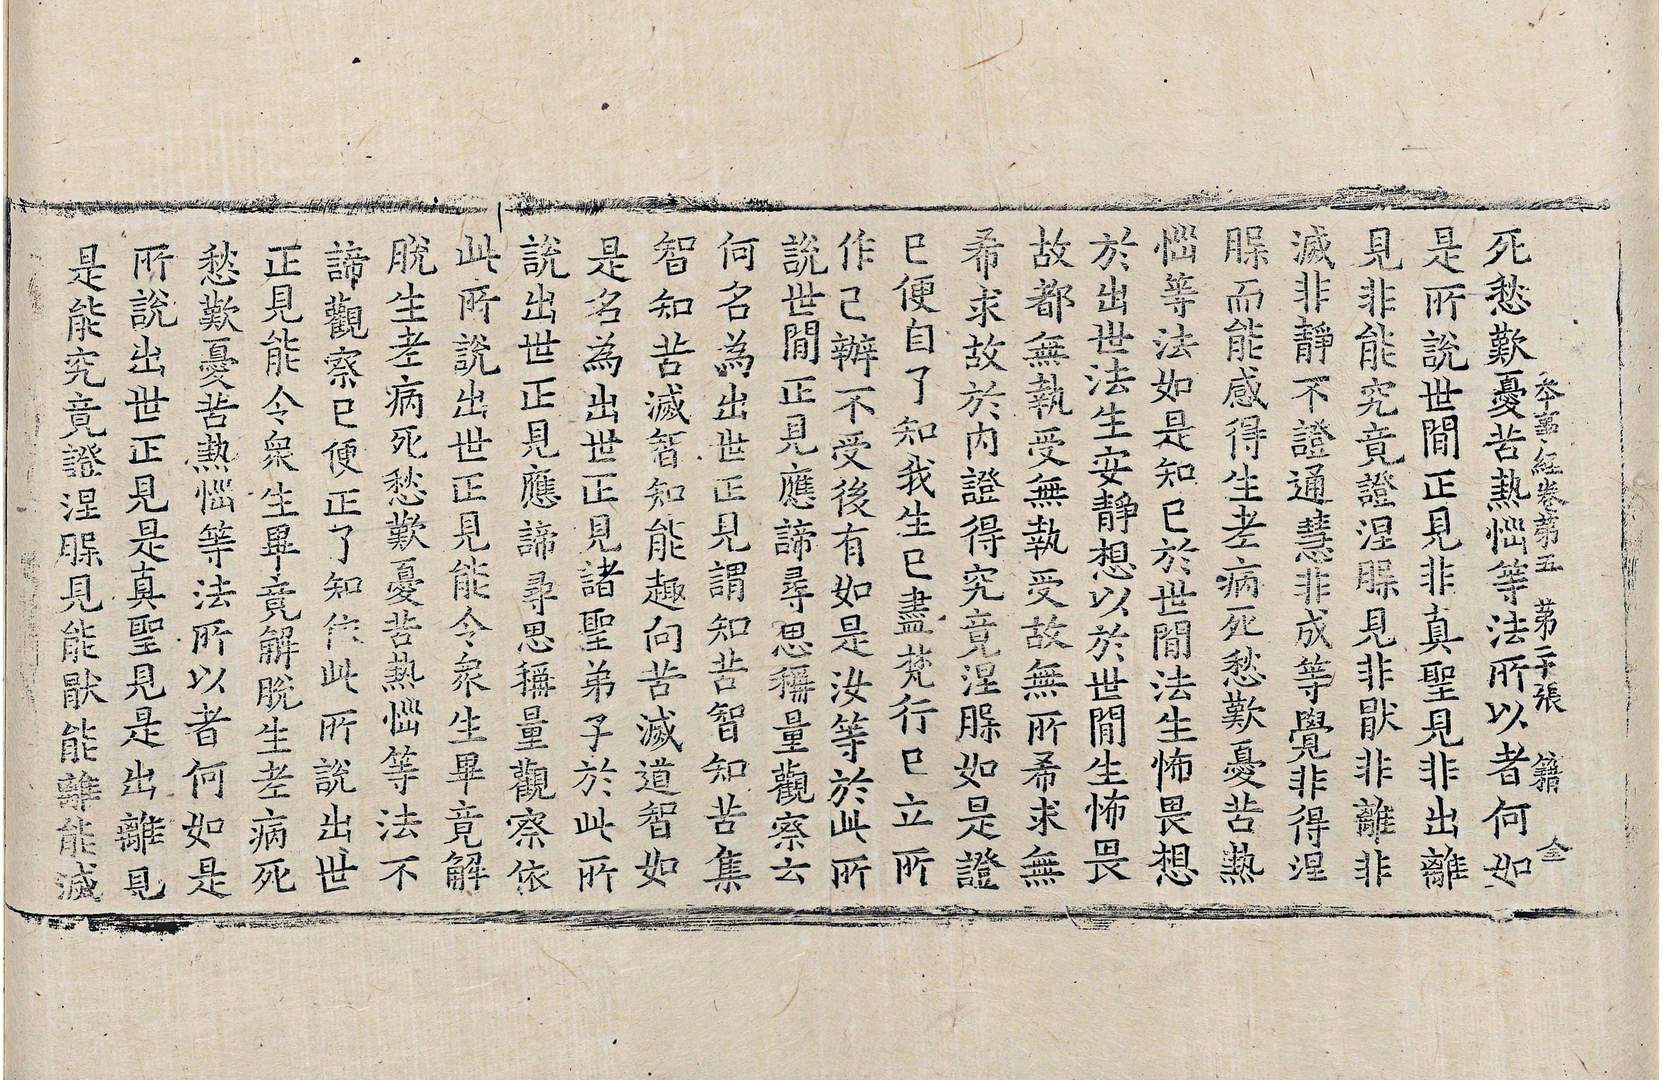 本事經卷第五　第二十張　籍　仝
死愁歎憂苦熱惱等法所以者何如
是所說世間正見非真聖見非出離
見非能究竟證涅槃見非猒非離非
滅非靜不證通慧非成等覺非得涅
槃而能感得生老病死愁歎憂苦熱
惱等法如是知已於世間法生怖畏想
於出世法生安靜想以於世間生怖畏
故都無執受無執受故無所希求無
希求故於內證得究竟涅槃如是證
已便自了知我生已盡梵行已立所
作已辦不受後有如是汝等於此所
說世間正見應諦尋思稱量觀察云
何名為出世正見謂知苦智知苦集
智知苦滅智知能趣向苦滅道智如
是名為出世正見諸聖弟子於此所
說出世正見應諦尋思稱量觀察依
此所說出世正見能令衆生畢竟解
脫生老病死愁歎憂苦熱惱等法不
諦觀察已便正了知依此所說出世
正見能令衆生畢竟解脫生老病死
愁歎憂苦熱惱等法所以者何如是
所說出世正見是真聖見是出離見
是能究竟證涅槃見能猒能離能滅